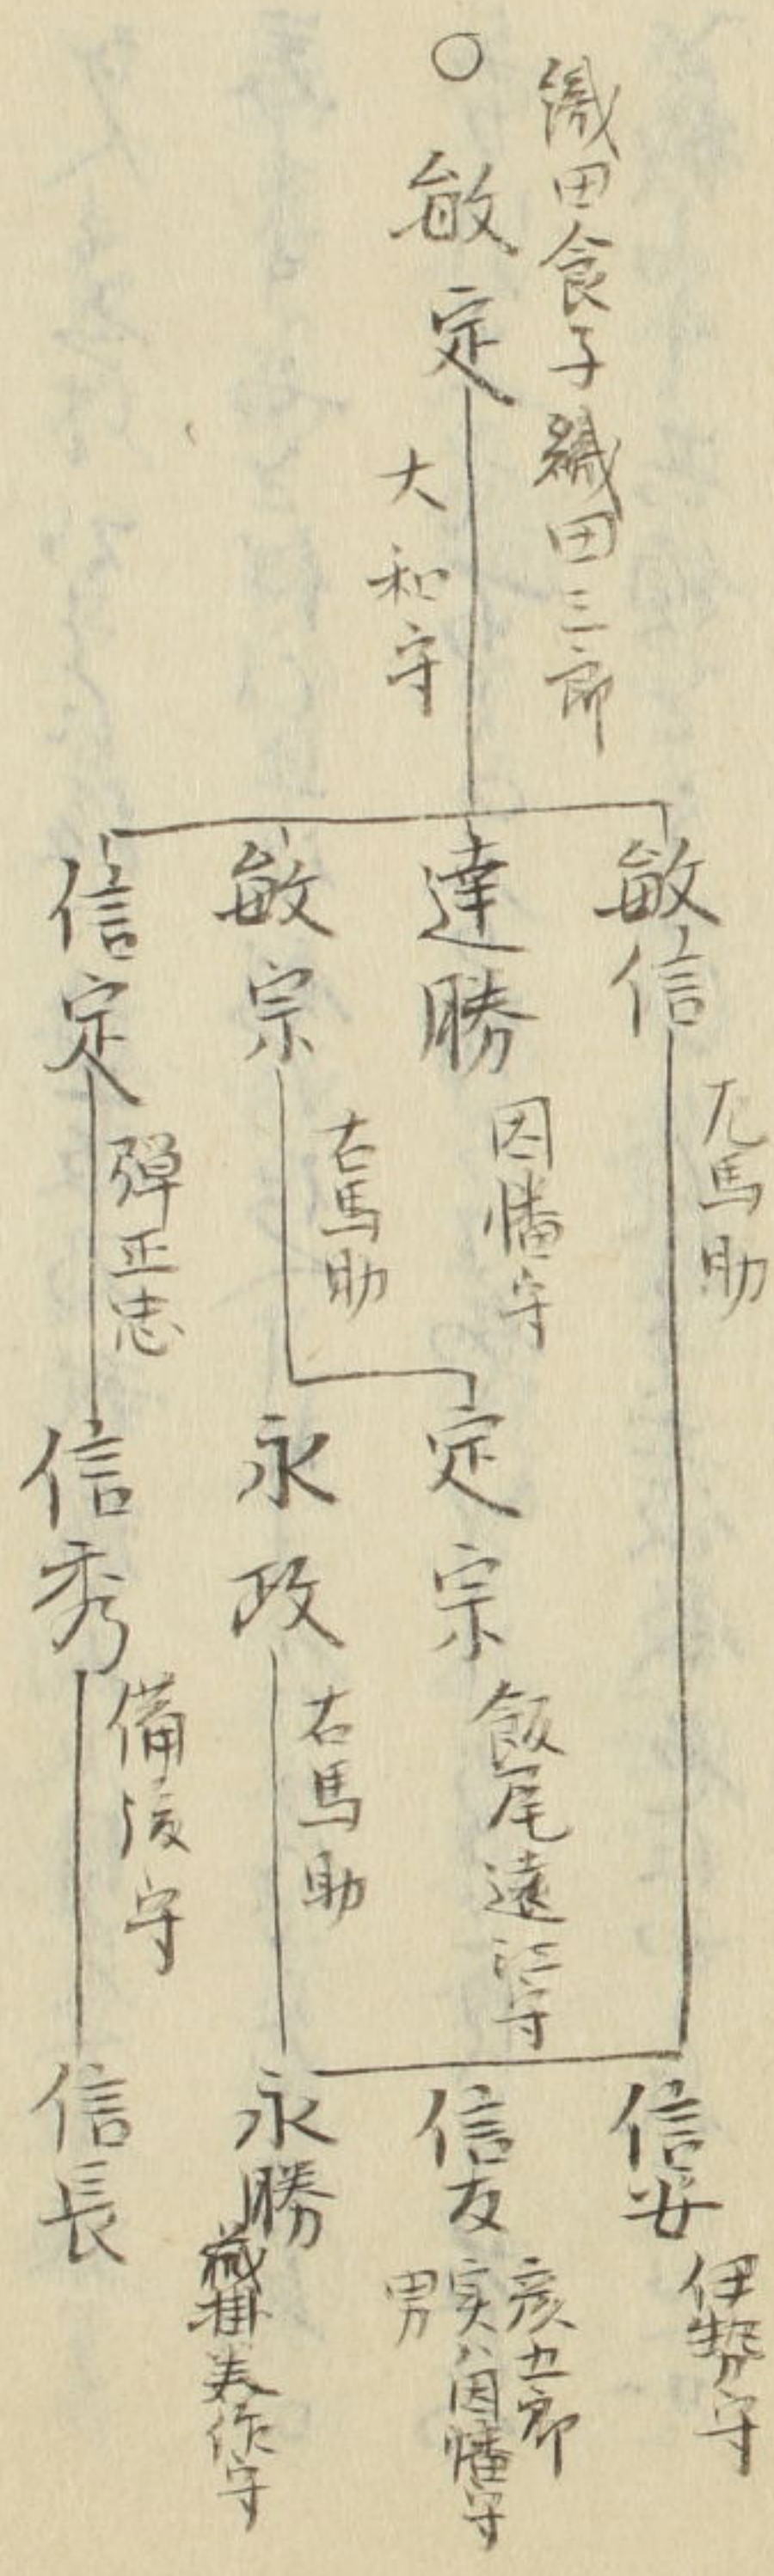 織田舎子織田三郎
○敏定
大和守
敏信
左馬助
達勝
因幡守
敏宗
右馬助
信定
弾正忠
定宗
飯尾遠江守
永政
右馬助
信秀
備後守
信安
伊勢守
信友
彦五郎
実ハ因幡守
男
永勝
美作守
信長